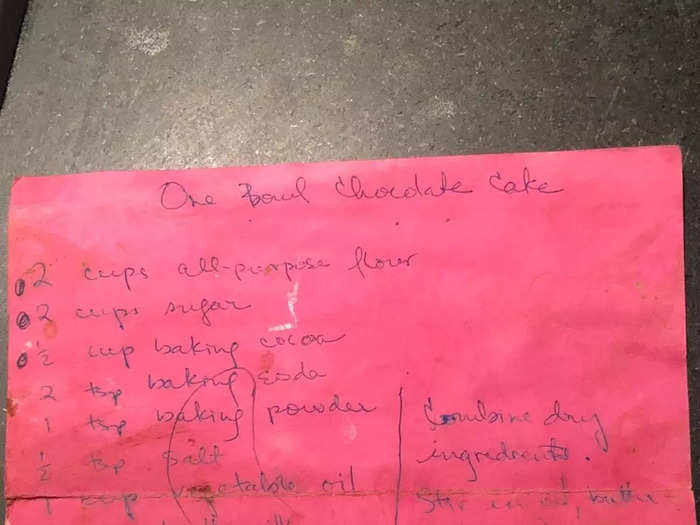 One Bowl Chocolate Cake
2 cups all-purpose flour
2 cups sugar
½ cup baking cocoa
2 tsp baking soda
1 tsp baking powder
½ tsp salt
1 cup vegetable oil
Combine dry
ingredients.
Stir in oil,